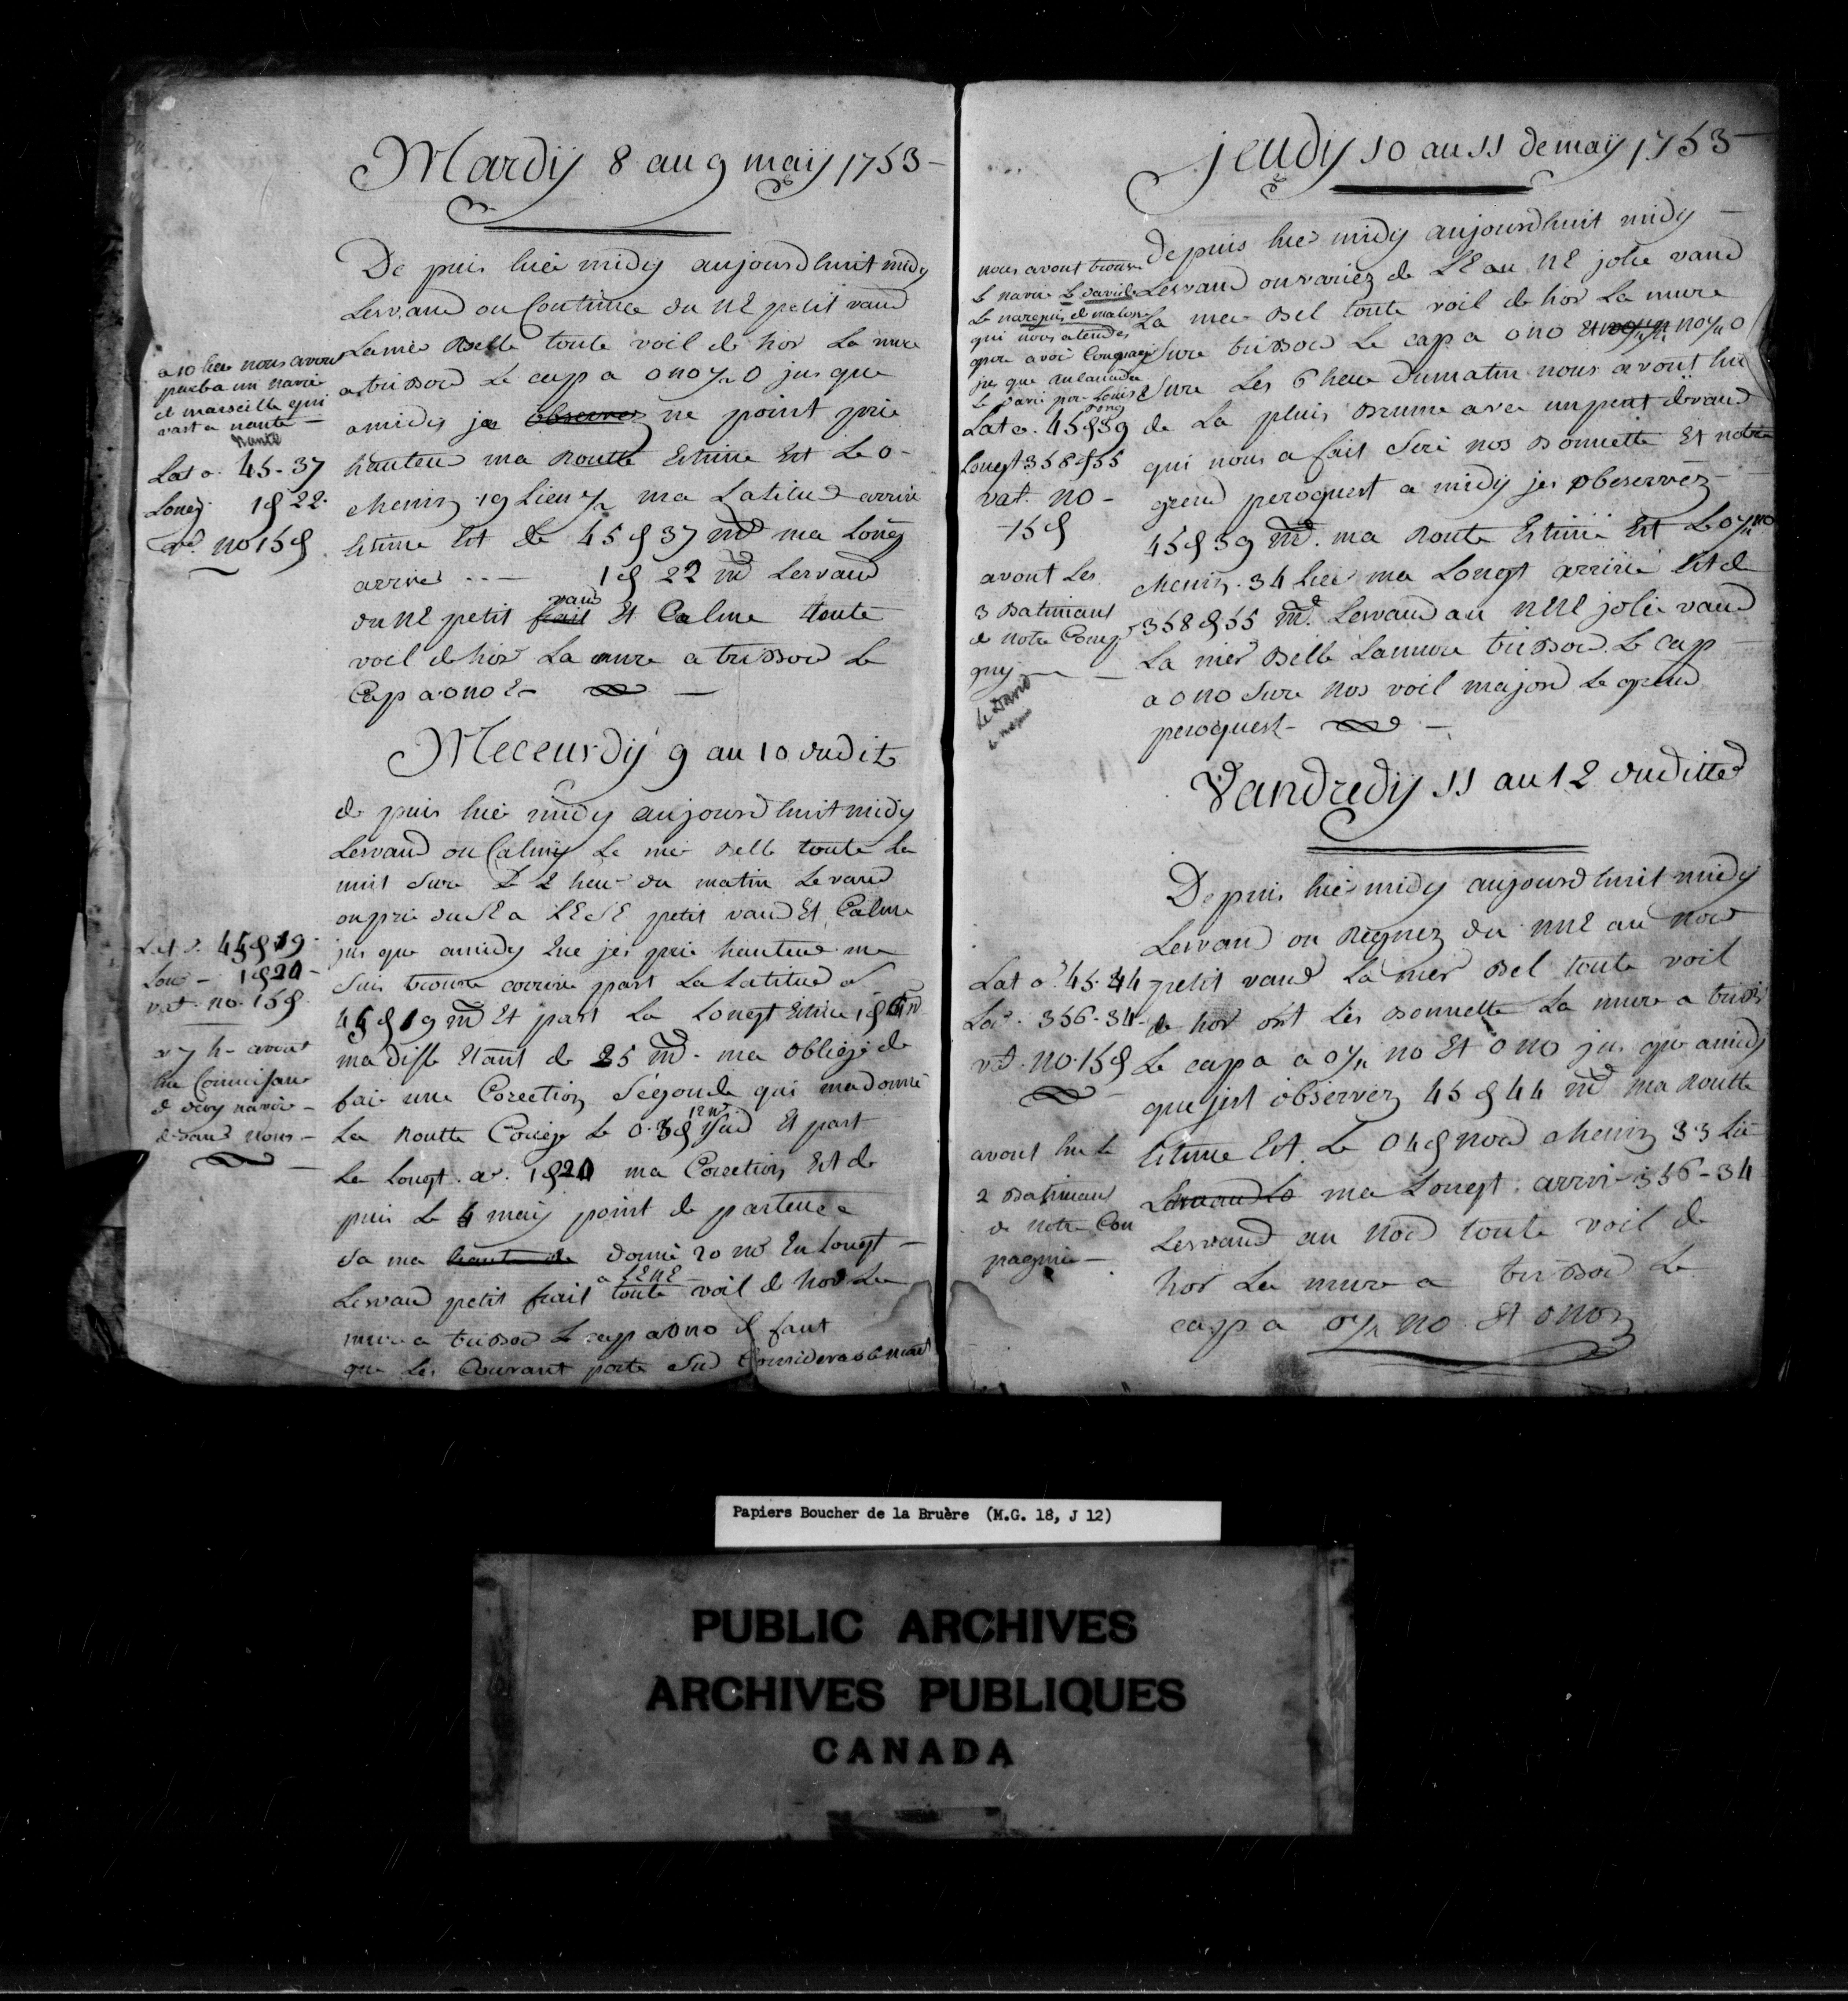 Mardÿ 8 au 9 maÿ 1753
De puis hier midy aujourdhuit midy
Lesvand ou Continue du NE petit vand
Lamer Belle toute voil de hor La mure
a tribord Le cap a ONO ½ O jus que
amidy jes observer ne point prie
hauteur ma Routte Estimé Est Le O -
chemin 19 Lieu ½ ma Latitud arrivé
Estime Est de 45 d 37 md ma Long
arrivé .. — 1 d 22 md Lesvand
du NE petit frait vand Et Calme toute
voil de hor La mure a tribord Le
Cap a ONO E -
a 10 heu nous avon
parlé a un navir
de marseille qui
vast a nante
Nante
Lat o. 45-37
Long. 1 d 22
vt no 15 d
Meceurdÿ 9 au 10 dudit
de puis hier midy aujourdhuit midy
Lesvand ou Calmy La mer Belle toute la
nuit Sure Le 2 heur du matin Le vand
on prie du SE a L'ESE petit vand Et Calme
jus que amidy Que jes prie hauteur me
Suis trouvé arrivé part La Latitud d
45 d 19 md Et part La Longt Estimé 1 d
ma difs Etant de 25 md ma obligé de
faire une Corection Ségonde qui ma donné
La Routte Corigé Le O 3 d 12 m Sud Et part
La Longt ar. 1 d 20 ma Corection Est de
puis Le 4 maÿ point de partence
Sa ma donné 20 md En Longt -
Lesvand petit frait a L'ENE toute voil de hor La
mure a tribord Le cap a ONO il faut
que Les Courant porte Sud Considerablement
Lat o. 45 d 19
Lon - 1 d 20 -
vat. no. 15 d
a 7 h - avont
hu Connisanc
de navir -
devand nous -
jeudÿ 10 au 11 de maÿ 1753
Depuis hier midy aujourdhuit midy -
Lesvand onvariez de L'E au NE jolie vand
La mer Bel toute voil de hor La mure
Sure tribord Le cap a ONO NO ½ O
Sure Les 6 heur dumatin nous avont hu
de La pluis Brume avec un petit de vand
qui nous a fait Seré nos Bonnette Et notre
grend peroquest a midy jes observéz
45 d 39 md. ma Route Estimé Est Le O ½ no
chemin 34 Lieu ma Longt arrivé Est de
358 d 55 md. Lesvand au NNE jolie vand
La mer Belle Lamure tribord Le Cap
a ONO Sure nos voil major Le grend
peroquest -
nous avont trouvé
Le navir Le david
Le marquis de malose
qui nous atendé
pour avoir Conpagni
jus que au canada
Le pour Louis
Lat o. 45 d 39
Longt 358 d 55
vat. no -
15 d
avont Les
3 Batimant
de notre Conp
gny
Le David
Vandredÿ 11 au 12 duditte
Depuis hier midy aujourdhuit midy
Lesvand on Regnez du NNE au Nord
petit vand La mer Bel toute voil
de hor ont Les Bonnette La mure a tribor
Le cap a O ½ NO Et ONO jus que amidy
que jest observez 45 d 44 md ma Routte
Estime Est Le O 4 d nord chemin 33 Lie
Lesvand Lo ma Longt. arrivé 356-34
Lesvand au Nord toute voil de
hor La mure a tribord Le
cap a O ½ NO Et ONO
Lat o. 45-44
Lo. 356-34-
vt. no. 15 d
avont hu Le
2 Batimant
de notre Con
pagnie -
Papiers Boucher de la Bruère (M.G. 18, J 12)
PUBLIC ARCHIVES
ARCHIVES PUBLIQUES
CANADA